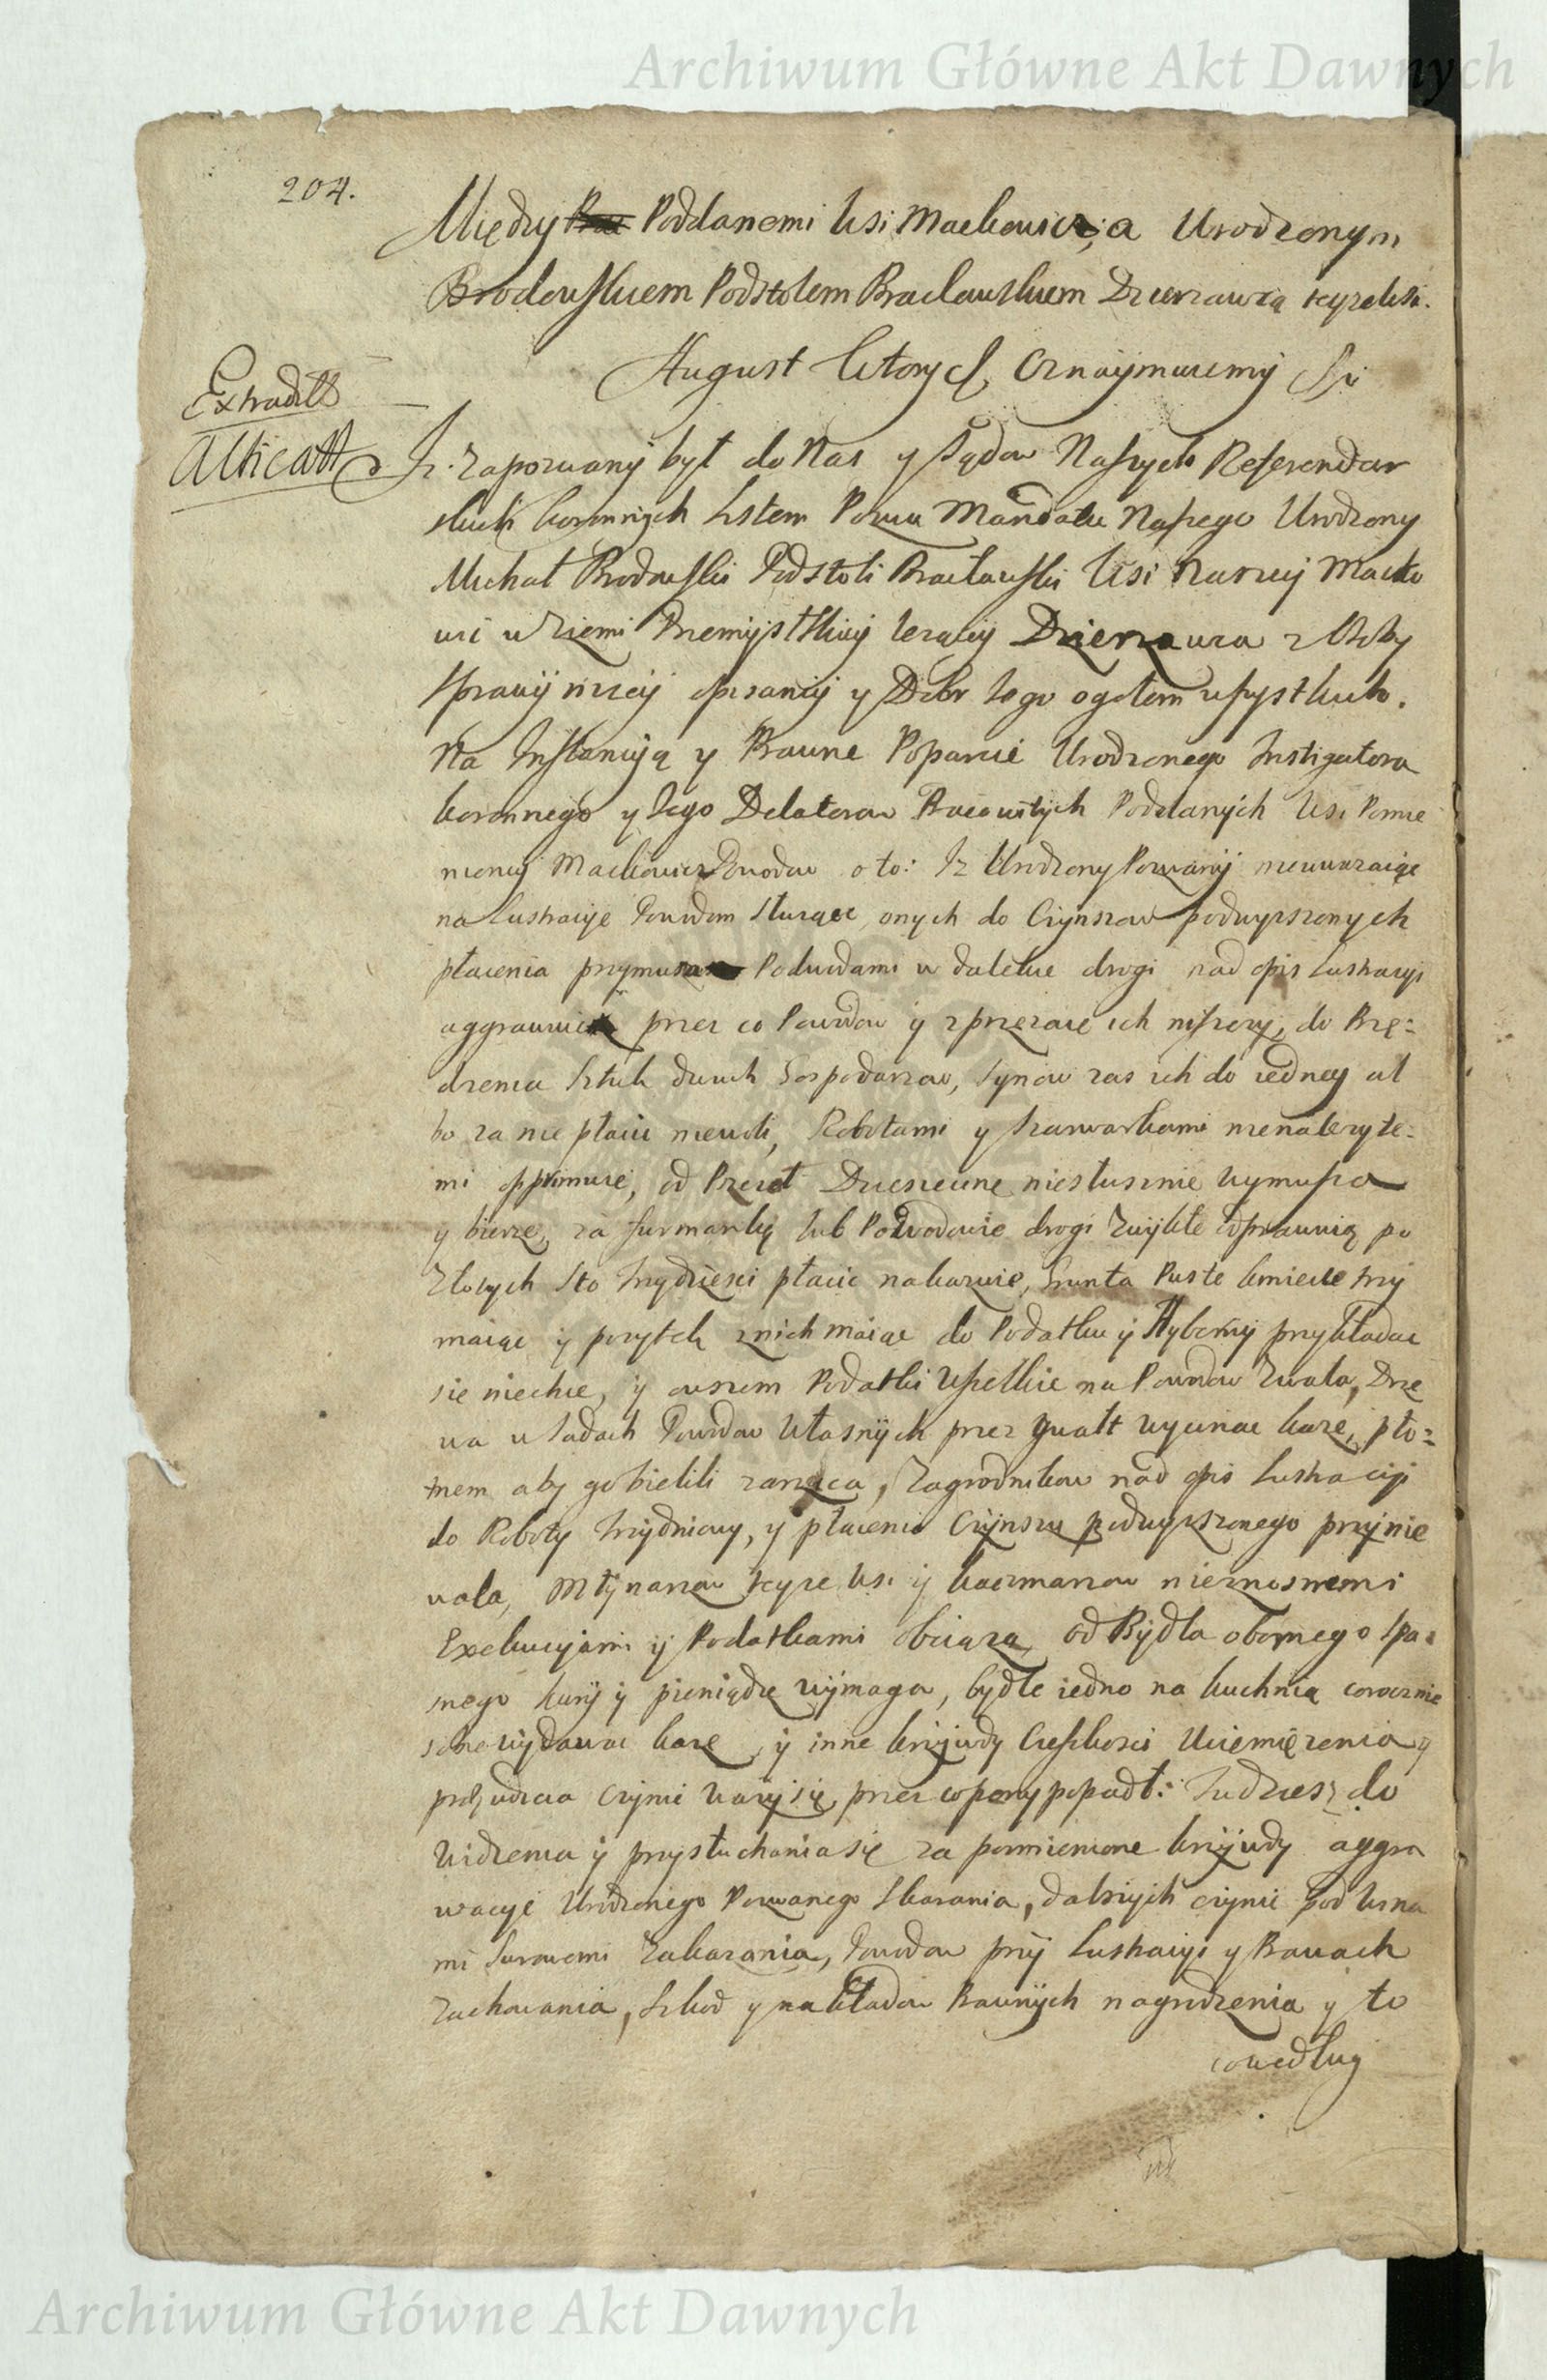 Archiwum Główne Akt Dawnych
204.
Między Poddanemi Wsi Mackowic, a Urodzonym
Brodowskiem Podstolem Bracławskiem Dzierzawcą teyze Wsi.
August Wtory &c. Oznaymuiemy &c.
Extradtt
Allicatt
Iz Zapozwany był do Nas y Sądow Naszych Referendar
skich koronnych Listem Pozwu Mandatu Naszego Urodzony
Michał Brodowski Podstoli Bracławski Wsi Naszey Macko
wic w Ziemi Przemyslkiey lezącey Dzierzawca z Osoby
sprawy nizey opisaney y Dobr Jego ogołem wszystkich.
Na Instancyą y Prawne Poparcie Urodzonego Instigatora
koronnego y Jego Delatorow Pracowitych Poddanych Wsi Pomie
nioney Mackowic Powodow o to: Iz Urodzony Pozwany nieuwazaiąc
na Lustracye Powodom słuzące, onych do Czynszow podwyzszonych
płacenia przymusza Podwodami w dalekie drogi nad opis Lustracyi
aggrawuie przez co Powodow y zprzezaie ich niszczy, do Przę-
dzenia Sztuk dwuch Gospodarzow, Synow zas ich do iedney al
bo za nie płacic niewoli, Robotami y szarwarkami nienalezyte-
mi opprimuie, od Pszczoł Dziesięcine niesłusznie wymusza
y bierze, za furmankę lub Podwodowe drogi zwykłe odprawuią po
Złotych sto trzydziesci płacic nakazuie, Grunta Puste kmiece trzy
maiąc y pozytek znich maiąc do Podatku y Hyberny przykładac
sie niechce, y owszem Podatki wszelkie na Powodow zwala, Drze
wa w Sadach Powodow własnych przez gwałt wycinac kaze, płó-
tnem aby go bielili zarzuca, Zagrodnikow nad opis Lustracyi
do Roboty trzydniowy, y płacenia Czynszu podwyzszonego przynie
wala, Młynarzow teyze Wsi y karczmarzow nieznosnemi
Exekucyami y Podatkami obciąza, od Bydła obornego spa-
snego kury y pieniądze wymaga, bydle iedno na kuchnią corocznie
sobie wydawac kaze, y inne krzywdy Cięszkosci Uciemięzenia y
przez co peny popadł: Tudziesz do
widzenia y przysłuchania się za pomienione krzywdy aggra
wacye Urodzonego Pozwanego skarania, dalszych czynic pod wina
mi surowemi Zakazania, Powodow przy Lustracyi y Prawach
zachowania, Szkod y nakładow Prawnych nagrodzenia y to
według
Archiwum Główne Akt Dawnych